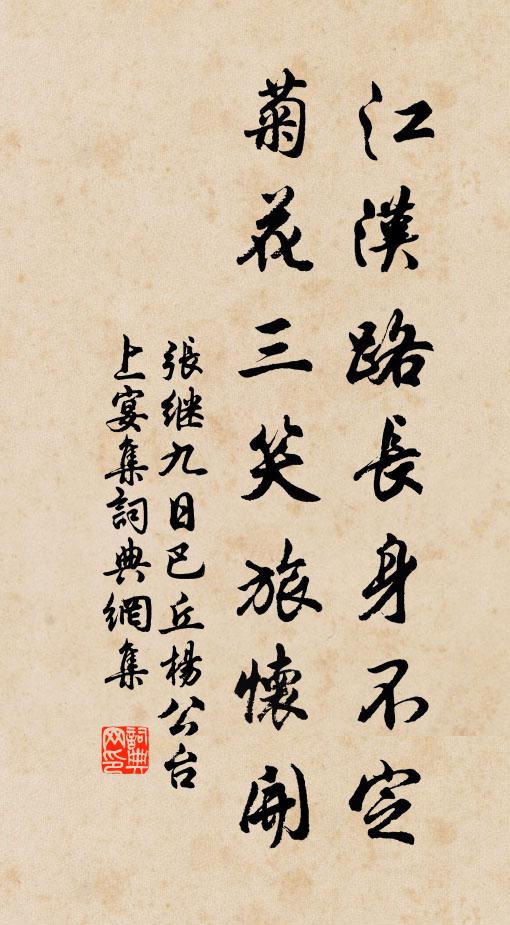 江漢路長身不定
菊花三笑旅懷開
張继九日巴丘楊公台
上宴集詞典網集
詞典
网印